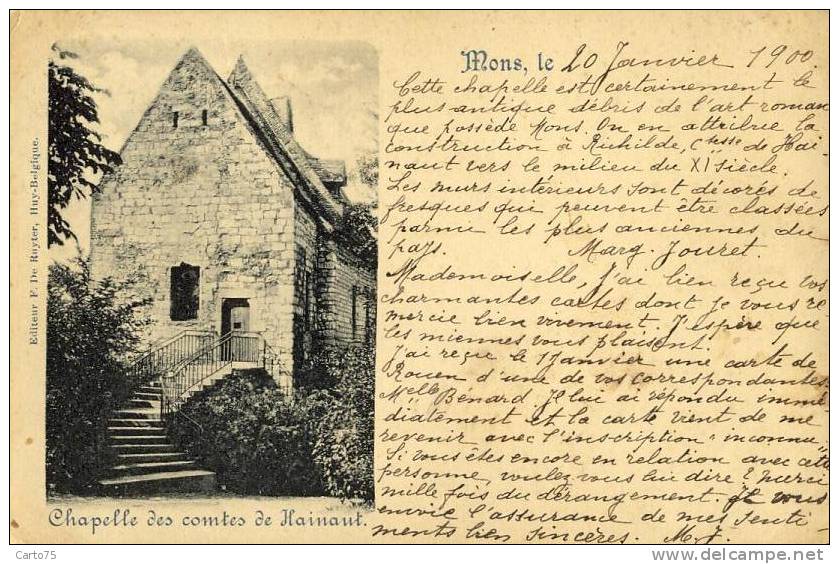 Mons, le 20 Janvier 1900.
Cette chapelle est certainement le
plus antique débris de l'art roman
que possède Mons. On en attribue la
construction à Richilde, Ctesse de Hai-
naut vers le milieu du XI Siècle.
Les murs intérieurs sont décorés de
fresques qui peuvent être classées
parmi les plus anciennes du
pays. Marg. Jouret.
Mademoiselle, j'ai bien reçu vos
charmantes cartes dont je vous re
mercie bien vivement. J'espère que
les miennes vous plaisent.
J'ai reçu le 1 Janvier une carte de
Rouen d'une de vos correspondantes,
Melle Bénard. Je lui ai répondu immé
diatement et la carte vient de me
revenir avec l'inscription "inconnu"
Si vous êtes encore en relation avec cette
personne, voulez-vous lui dire? merci
mille fois du dérangement. Je vous
envoie l'assurance de mes senti-
ments bien sincères. M. J.
Editeur F. De Ruyter, Huy-Belgique.
Chapelle des comtes de Hainaut.
Carto75
www.delcampe.net